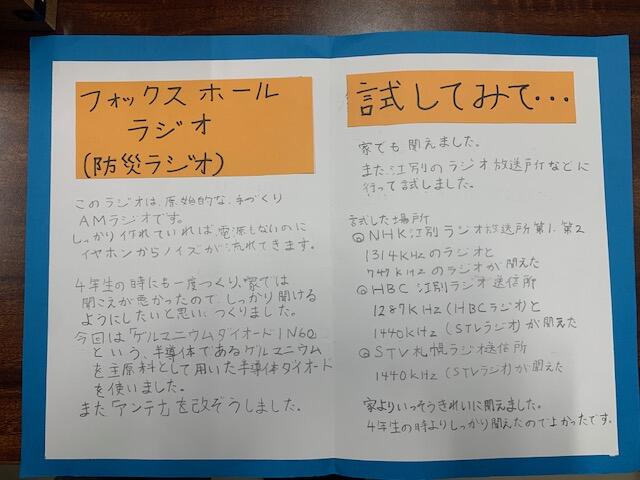 フォックスホール
ラジオ
(防災ラジオ)
このラジオは、原始的な、手づくり
AMラジオです。
しっかり作れていれば、電源もないのに
イヤホンからノイズが流れてきます。
4年生の時にも一度つくり、家では
聞こえが悪かったので、しっかり聞ける
ようにしたいと思いつくりました。
今回は「ゲルマニウムダイオード1N60
という、半導体であるゲルマニウム
を主原料として用いた半導体ダイオード
を使いました。
また「アンテナ」を改ぞうしました。
試してみて・・・
家でも聞えました。
また江別のラジオ放送所などに
行って試しました。
試した場所
◎NHK江別ラジオ放送所第1.第2
1314KHzのラジオと
747KHzのラジオが聞えた
◎HBC江別ラジオ送信所
1287KHz(HBCラジオ)と
1440KHz(STVラジオ)が聞えた
◎STV札幌ラジオ送信所
1440KHz(STVラジオ)が聞えた
家よりいっそうきれいに聞えました。
4年生の時よりしっかり聞えたのでよかったです。